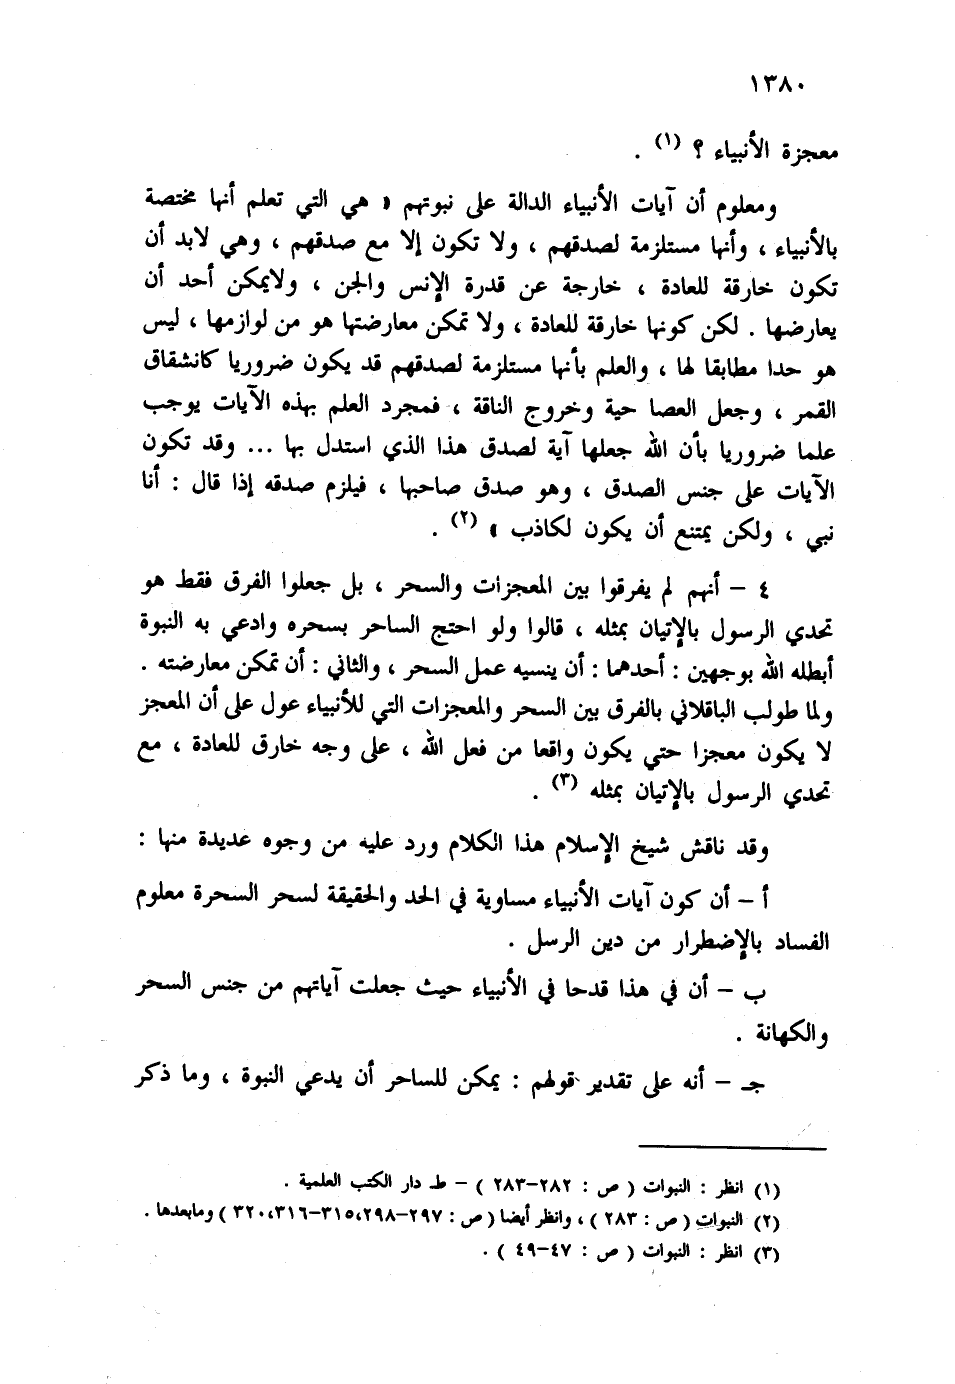 ١٣٨٠
معجزة الأنبياء ؟ (١) .
ومعلوم أن آيات الأنبياء الدالة على نبوتهم « هي التي تعلم أنها مختصة
بالأنبياء ، وأنها مستلزمة لصدقهم ، ولا تكون إلا مع صدقهم ، وهي لابد أن
تكون خارقة للعادة ، خارجة عن قدرة الإنس والجن ، ولايمكن أحد أن
يعارضها . لكن كونها خارقة للعادة ، ولا تمكن معارضتها هو من لوازمها ، ليس
هو حدا مطابقا لها ، والعلم بأنها مستلزمة لصدقهم قد يكون ضروريا كانشقاق
القمر ، وجعل العصا حية وخروج الناقة ، فمجرد العلم بهذه الآيات يوجب
علما ضروريا بأن الله جعلها آية لصدق هذا الذي استدل بها ... وقد تكون
الآيات على جنس الصدق ، وهو صدق صاحبها ، فيلزم صدقه إذا قال : أنا
نبي ، ولكن يمتنع أن يكون لكاذب » (٢) .
٤ – أنهم لم يفرقوا بين المعجزات والسحر ، بل جعلوا الفرق فقط هو
تحدي الرسول بالإتيان بمثله ، قالوا ولو احتج الساحر بسحره وادعي به النبوة
أبطله الله بوجهين : أحدهما : أن ينسيه عمل السحر ، والثاني : أن تمكن معارضته .
ولما طولب الباقلاني بالفرق بين السحر والمعجزات التي للأنبياء عول على أن المعجز
لا يكون معجزا حتي يكون واقعا من فعل الله ، على وجه خارق للعادة ، مع
تحدي الرسول بالإتيان بمثله (٣) .
وقد ناقش شيخ الإسلام هذا الكلام ورد عليه من وجوه عديدة منها :
أ – أن كون آيات الأنبياء مساوية في الحد والحقيقة لسحر السحرة معلوم
الفساد بالإضطرار من دين الرسل .
ب – أن في هذا قدحا في الأنبياء حيث جعلت آياتهم من جنس السحر
والكهانة .
جـ – أنه على تقدير قولهم : يمكن للساحر أن يدعي النبوة ، وما ذكر
(١) انظر : النبوات ( ص : ٢٨٢–٢٨٣ ) – ط دار الكتب العلمية .
(٢) النبوات ( ص : ٢٨٣ ) ، وانظر أيضا ( ص : ٢٩٧–٢٩٨،٣١٥–٣١٦،٣٢٠ ) ومابعدها .
(٣) انظر : النبوات ( ص : ٤٧–٤٩ ) .